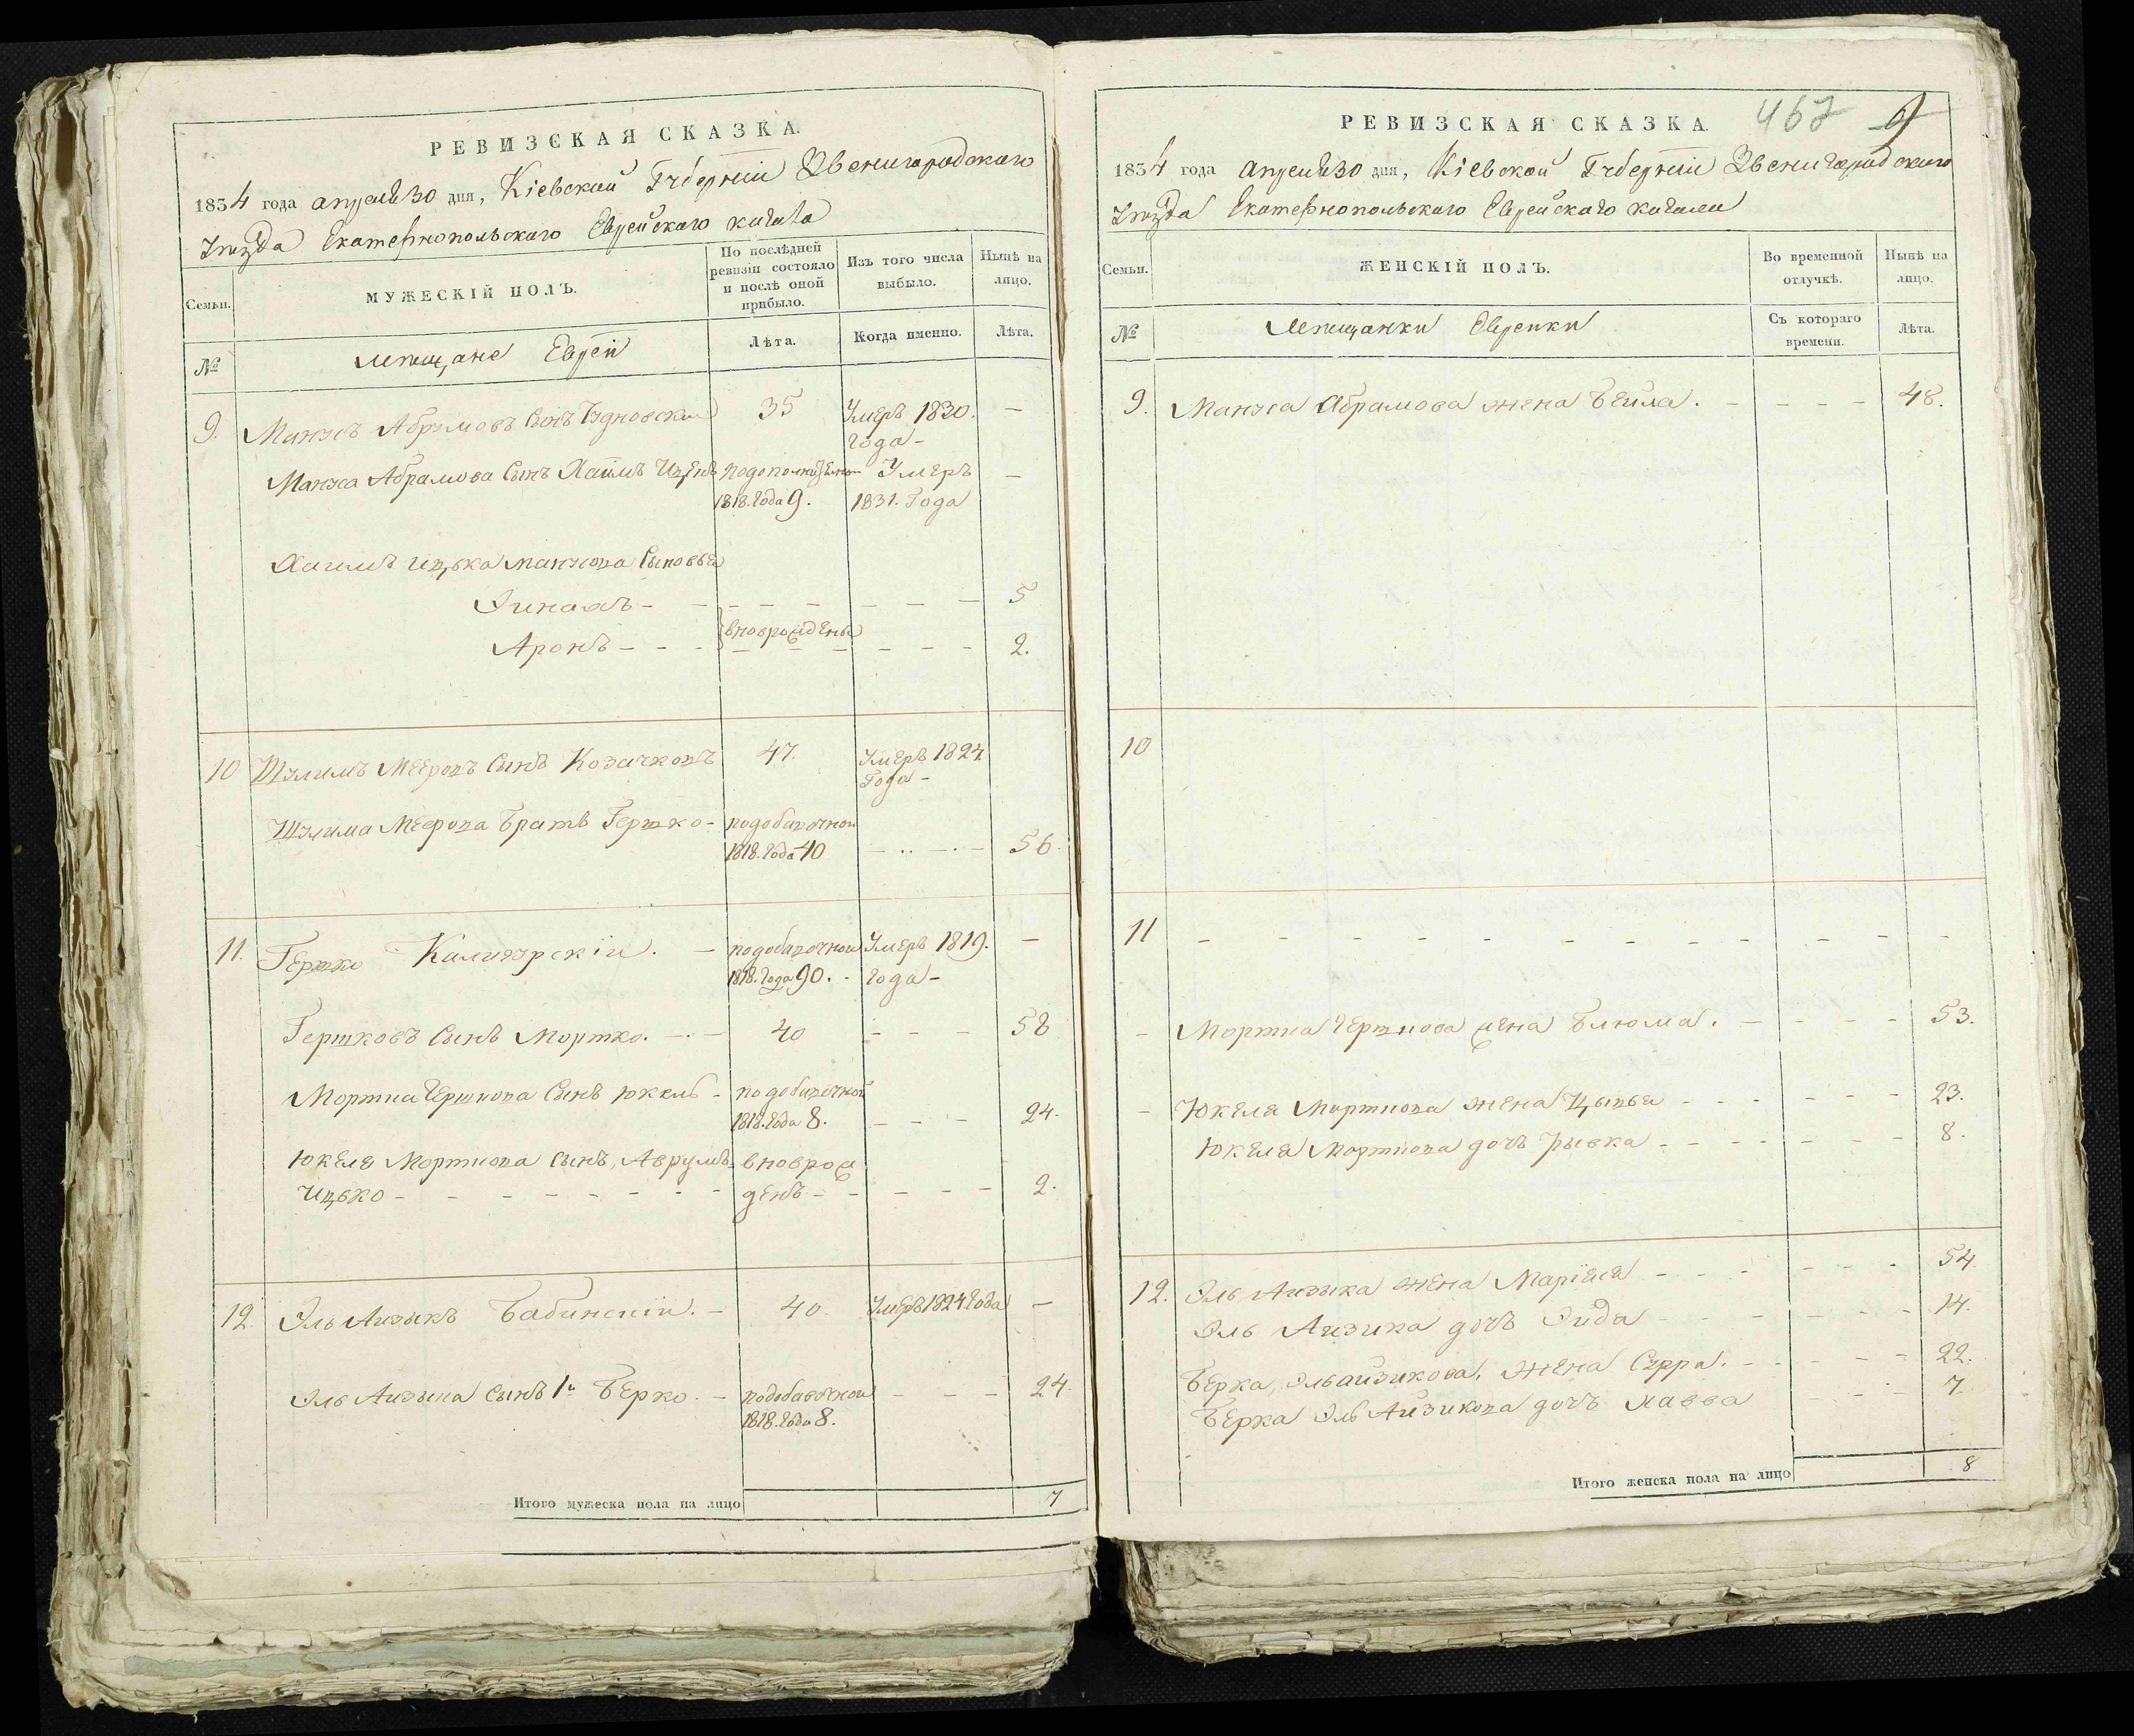 РЕВИЗСКАЯ СКАЗКА.
1834 года апреля 30 дня, Кіевской Губерніи Звенигородскаго
Уѣзда Екатеринопольскаго Еврейскаго кагала
Семьи.
МУЖЕСКІЙ ПОЛЪ.
По послѣдней
ревизіи состояло
и послѣ оной
прибыло.
Изъ того числа
выбыло.
Нынѣ на
лицо.
№
мещане Евреи
Лѣта.
Когда именно.
Лѣта.
9. Манусъ Абрамовъ Сынъ 35 Умеръ 1830. —
года —
Мануса Абрамова Сынъ Хаимъ Ицекъ Умеръ —
1818. года 9. 1831. Года
Хаимъ Ицька Манусова Сыновья
5
вноврождены
Аронъ 2.
10 Шулимъ Мееровъ Сынъ Козачковъ 47. Умеръ 1824
Года —
Шулима Меерова Братъ Гершко — по добавочной
1818. года 40 56.
11. Гершко . — по добавочной Умеръ 1819. —
1818. года 90. — года —
Гершковъ Сынъ Мортко. — 40 58
Мортка Гершкова Сынъ Юкель — по добавочной
1818. года 8. 24.
Юкеля Морткова Сынъ, Аврумъ вноврож
Ицько денъ — 2.
12. Эль Аизыкъ Бабинскіи. — 40. Умеръ 1824 года —
Эль Аизыка Сынъ 1й Берко. — по добавочной 24.
1818. года 8.
Итого мужеска пола на лицо 7
РЕВИЗСКАЯ СКАЗКА.
467 9
1834 года апреля 30 дня, Кіевской Губерніи Звенигородскаго
Уѣзда Екатеринопольскаго Еврейскаго кагала
Семьи.
ЖЕНСКІЙ ПОЛЪ.
Во временной
отлучкѣ.
Нынѣ на
лицо.
№
Мещанки Еврейки
Съ котораго
времени.
Лѣта.
9. Мануса Абрамова жена Бейла. 48.
10
11
Мортка Гершкова жена Блюма. 53.
Юкеля Морткова жена Цывья 23.
Юкеля Морткова дочь Рывка 8.
12. Эль Аизыка жена Маріяся 54.
Эль Аизика дочь Эйда 14.
Берка, Эльайзикова, жена Сурра. 22.
Берка Эль Айзикова дочь Хавва 7.
Итого женска пола на лицо 8